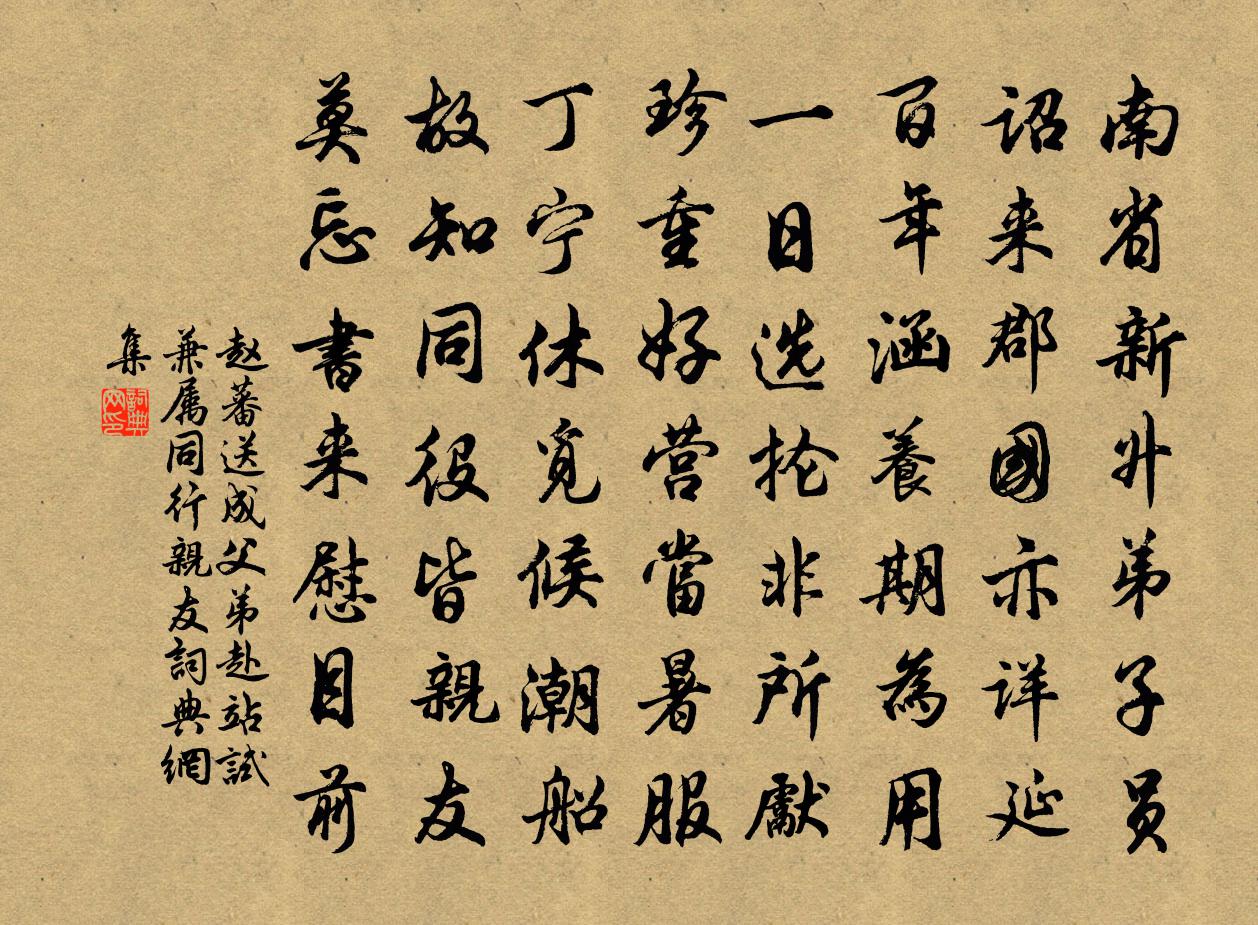 南省新升弟子员
诏来郡國亦详延
百年涵養期為用
一日选抡非所獻
珍重好营當暑服
丁宁休觅候潮船
故知同役皆親友
莫忘書来慰目前
赵蕃送成父弟赴站試
兼属同行親友詞典網
集
詞典
网印